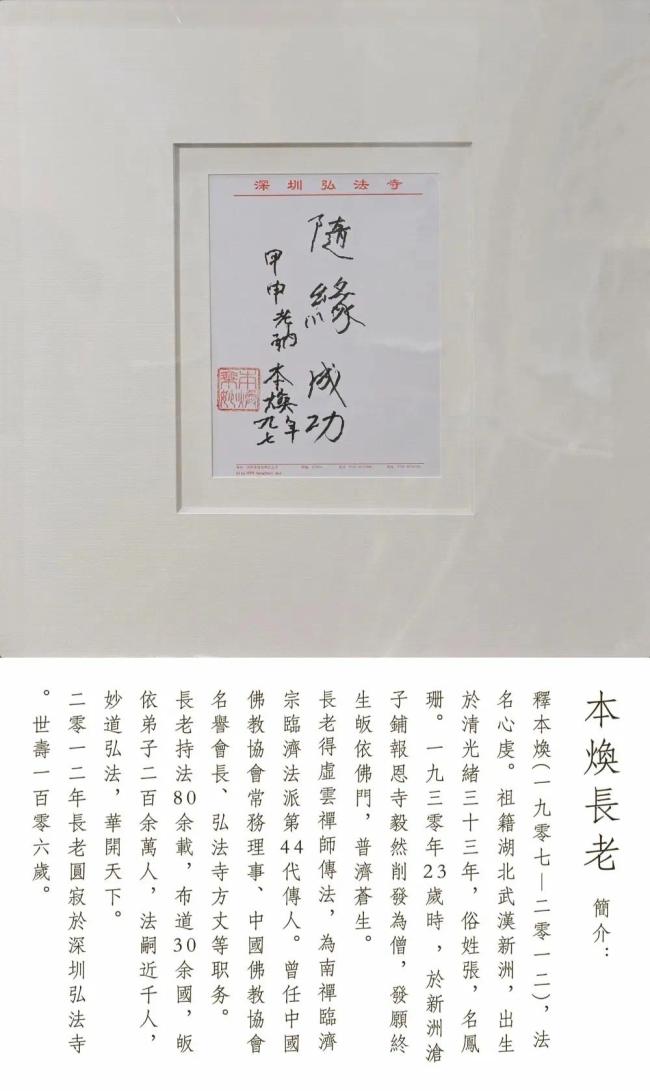 深圳弘法寺
隨緣成功
甲申老衲本煥年九七
本煥長老 簡介：
釋本煥(一九零七—二零一二)，法
名心虔。祖籍湖北武漢新洲，出生
於清光緒三十三年，俗姓張，名鳳
珊。一九三零年23歲時，於新洲滄
子鋪報恩寺毅然削發為僧，發願終
生皈依佛門，普濟蒼生。
長老得虛雲禪師傳法，為南禪臨濟
宗臨濟法派第44代傳人。曾任中國
佛教協會常務理事、中國佛教協會
名譽會長、弘法寺方丈等职务。
長老持法80余載，布道30余國，皈
依弟子二百余萬人，法嗣近千人，
妙道弘法，華開天下。
二零一二年長老圓寂於深圳弘法寺
。世壽一百零六歲。